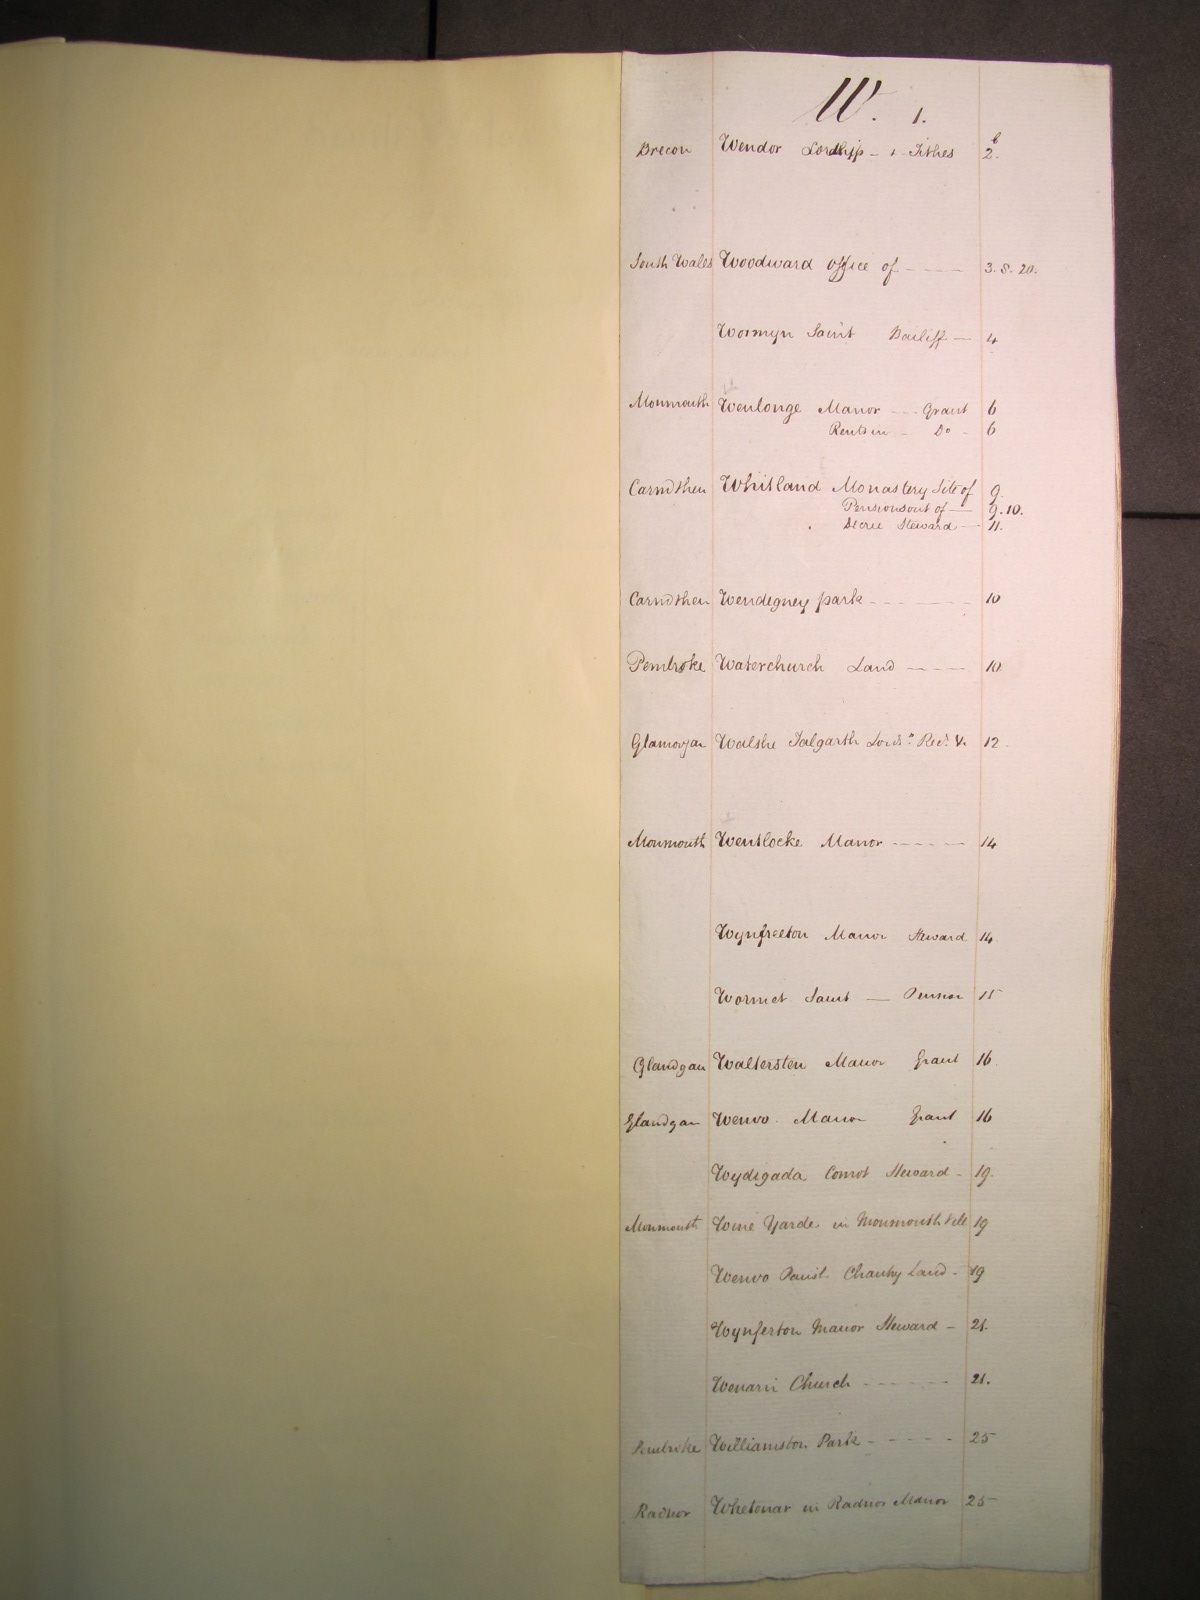 W. 1.
Brecon Wendor Lordship - + - Tithes 2.
South Wales Woodward office of - - - 3. 8. 20.
Wormyn Saint Bailiff - 4
Monmouth Wenlonge Manor - - Grant 6
Rents in - Do - 6
Carmthen Whitland Monastery Site of 9.
Pensions out of - 9. 10.
Steward - 11.
Carmthen Wendegney park - - - - 10
Pembroke Waterchurch Land - - - 10.
Glamorgan Walshe Talgarth 12.
Monmouth Wentlocke Manor - - - - 14
Wynfreeton Manor Steward 14.
Wormet Saint - Pension 15
Glamgan Waltersten Manor Grant 16
Glamgan Wenvo. Manor Grant 16
Wydegada Comot Steward - 19.
Monmouth Wine Yarde in Monmouth 19
Wenvo Chantry Land - 19
Wynferton Manor Steward - 21.
Wenarri Church - - - - - 21.
Pembroke Williamston Park - - - - - 25
Radnor Whetenar in Radnor Manor 25